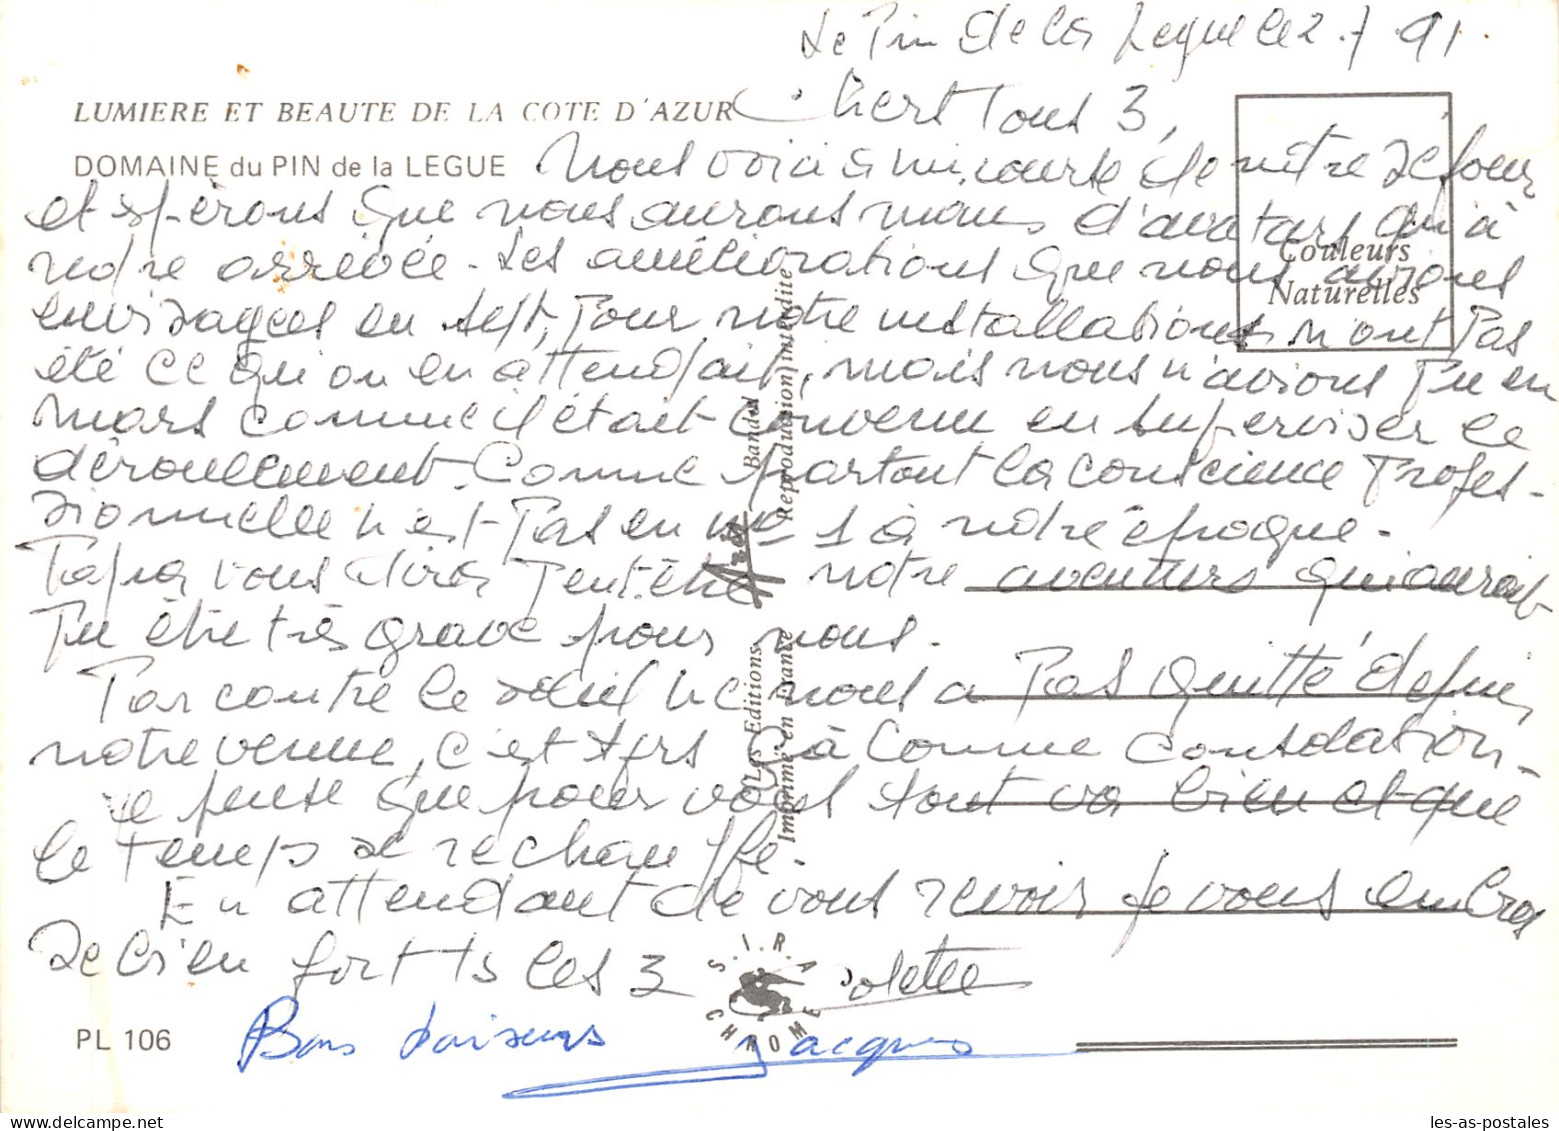 Le Pin de la Legue le 2.7.91.
LUMIERE ET BEAUTE DE LA COTE D'AZUR
Chers Tous 3,
DOMAINE du PIN de la LEGUE
Nous voici à mi-course de nôtre Séjour
et espérons que nous aurons moins d'avatars qu'à
notre arrivée. Les améliorations que nous avions
envisagées en sept, Pour notre installations n'ont Pas
été ce qu'on en attendait, mais nous n'avions Pu en
mars comme il était convenu en superviser le
déroulement. Comme partout la conscience Profes-
sionnelle n'est Pas en no 1 à notre époque.
Papa vous dira Peut-être notre aventure qui aurait
Pu être très grave pour nous.
Par contre le soleil ne nous a Pas quitté depuis
notre venue, c'est tjrs çà comme consolation.
Je pense que pour vous tout va bien et que
le temps se réchauffe.
En attendant de vous revoir je vous embras
se bien fort ts les 3
Bons baisers Jacques
Couleurs
Naturelles
Les Editions "Aris" Bandol
Imprimé en France Reproduction interdite
S.I.R.A
CHROME
PL 106
les-as-postales